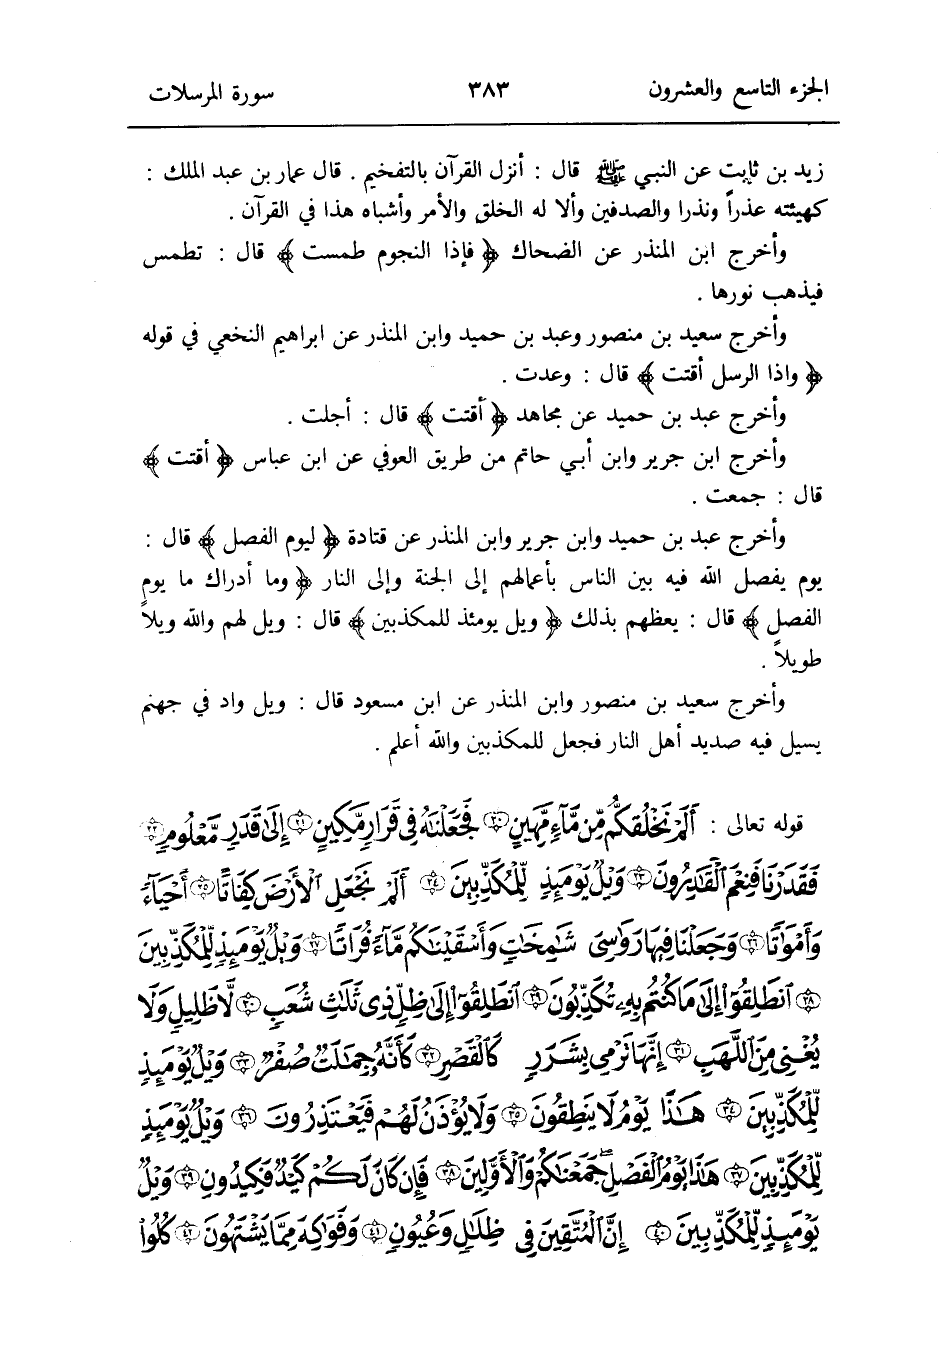 الجزء التاسع والعشرون ٣٨٣ سورة المرسلات
زيد بن ثابت عن النبي ﷺ قال : أنزل القرآن بالتفخيم . قال عمار بن عبد الملك :
كهيئته عذراً ونذرا والصدفين وألا له الخلق والأمر وأشباه هذا في القرآن .
وأخرج ابن المنذر عن الضحاك ﴿ فإذا النجوم طمست ﴾ قال : تطمس
فيذهب نورها .
وأخرج سعيد بن منصور وعبد بن حميد وابن المنذر عن ابراهيم النخعي في قوله
﴿ واذا الرسل أقتت ﴾ قال : وعدت .
وأخرج عبد بن حميد عن مجاهد ﴿ أقتت ﴾ قال : أجلت .
وأخرج ابن جرير وابن أبي حاتم من طريق العوفي عن ابن عباس ﴿ أقتت ﴾
قال : جمعت .
وأخرج عبد بن حميد وابن جرير وابن المنذر عن قتادة ﴿ ليوم الفصل ﴾ قال :
يوم يفصل الله فيه بين الناس بأعمالهم إلى الجنة وإلى النار ﴿ وما أدراك ما يوم
الفصل ﴾ قال : يعظهم بذلك ﴿ ويل يومئذ للمكذبين ﴾ قال : ويل لهم والله ويلاً
طويلاً .
وأخرج سعيد بن منصور وابن المنذر عن ابن مسعود قال : ويل واد في جهنم
يسيل فيه صديد أهل النار فجعل للمكذبين والله أعلم .
قوله تعالى : أَلَمْ نَخْلُقكُّم مِّن مَّآءٍ مَّهِينٍ ٢٠ فَجَعَلْنَٰهُ فِى قَرَارٍ مَّكِينٍ ٢١ إِلَىٰ قَدَرٍ مَّعْلُومٍ ٢٢
فَقَدَرْنَا فَنِعْمَ ٱلْقَٰدِرُونَ ٢٣ وَيْلٌ يَوْمَئِذٍ لِّلْمُكَذِّبِينَ ٢٤ أَلَمْ نَجْعَلِ ٱلْأَرْضَ كِفَاتًا ٢٥ أَحْيَآءً
وَأَمْوَٰتًا ٢٦ وَجَعَلْنَا فِيهَا رَوَٰسِىَ شَٰمِخَٰتٍ وَأَسْقَيْنَٰكُم مَّآءً فُرَاتًا ٢٧ وَيْلٌ يَوْمَئِذٍ لِّلْمُكَذِّبِينَ
٢٨ ٱنطَلِقُوٓا۟ إِلَىٰ مَا كُنتُم بِهِۦ تُكَذِّبُونَ ٢٩ ٱنطَلِقُوٓا۟ إِلَىٰ ظِلٍّ ذِى ثَلَٰثِ شُعَبٍ ٣٠ لَّا ظَلِيلٍ وَلَا
يُغْنِى مِنَ ٱللَّهَبِ ٣١ إِنَّهَا تَرْمِى بِشَرَرٍ كَٱلْقَصْرِ ٣٢ كَأَنَّهُۥ جِمَٰلَتٌ صُفْرٌ ٣٣ وَيْلٌ يَوْمَئِذٍ
لِّلْمُكَذِّبِينَ ٣٤ هَٰذَا يَوْمُ لَا يَنطِقُونَ ٣٥ وَلَا يُؤْذَنُ لَهُمْ فَيَعْتَذِرُونَ ٣٦ وَيْلٌ يَوْمَئِذٍ
لِّلْمُكَذِّبِينَ ٣٧ هَٰذَا يَوْمُ ٱلْفَصْلِ جَمَعْنَٰكُمْ وَٱلْأَوَّلِينَ ٣٨ فَإِن كَانَ لَكُمْ كَيْدٌ فَكِيدُونِ ٣٩ وَيْلٌ
يَوْمَئِذٍ لِّلْمُكَذِّبِينَ ٤٠ إِنَّ ٱلْمُتَّقِينَ فِى ظِلَٰلٍ وَعُيُونٍ ٤١ وَفَوَٰكِهَ مِمَّا يَشْتَهُونَ ٤٢ كُلُوا۟